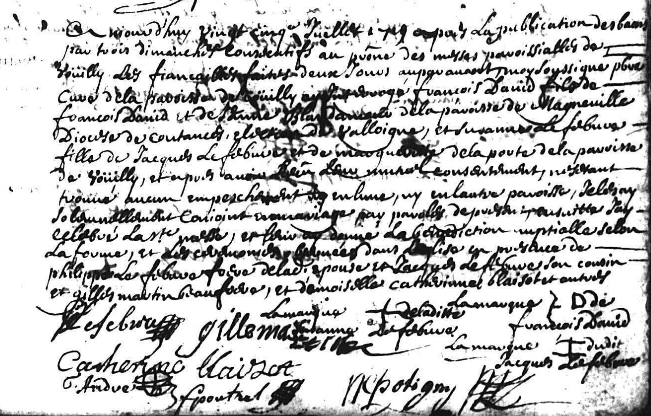 Aujourd'huy vingt cinq Juillet 1719 apres La publication des bans
par trois dimanches Consecutifs au prône des messes paroissialles de
Voüilly Les fiançailles faites deux Jours auparavant, moy soussigné pbre
Curé de la paroisse de Voüilly ay Interrogé François David fils de
François David et de de la paroisse de Magneville
Diocese de Coutances, election de Valloigne, et Susanne Le febure
fille de Jacques Le febure et de marguerite de la porte de la paroisse
de Voüilly, et apres avoir Leur mutuel consentement, n'estant
trouvé aucun empeschement ny en L'une, ny en L'autre paroisse, Je Les ay
solennellement Conjoint en mariage par parolles de present ensuitte J'ay
celebré La Ste messe, et donné La benediction nuptialle selon
La forme, et Les ceremonies dans L'eglise en presence de
philippe Le febure frere de La d. epouse et Jacques Le febure son cousin
et gilles martin beaufrere, et demoiselle Catherinne blaisot et autres
La marque de Laditte La marque D De
Lefebure gilles mar Susanne Le febure françois David
La marque dudit
Catherine blaizot Jacques Le febure
André fpoutrel potigny